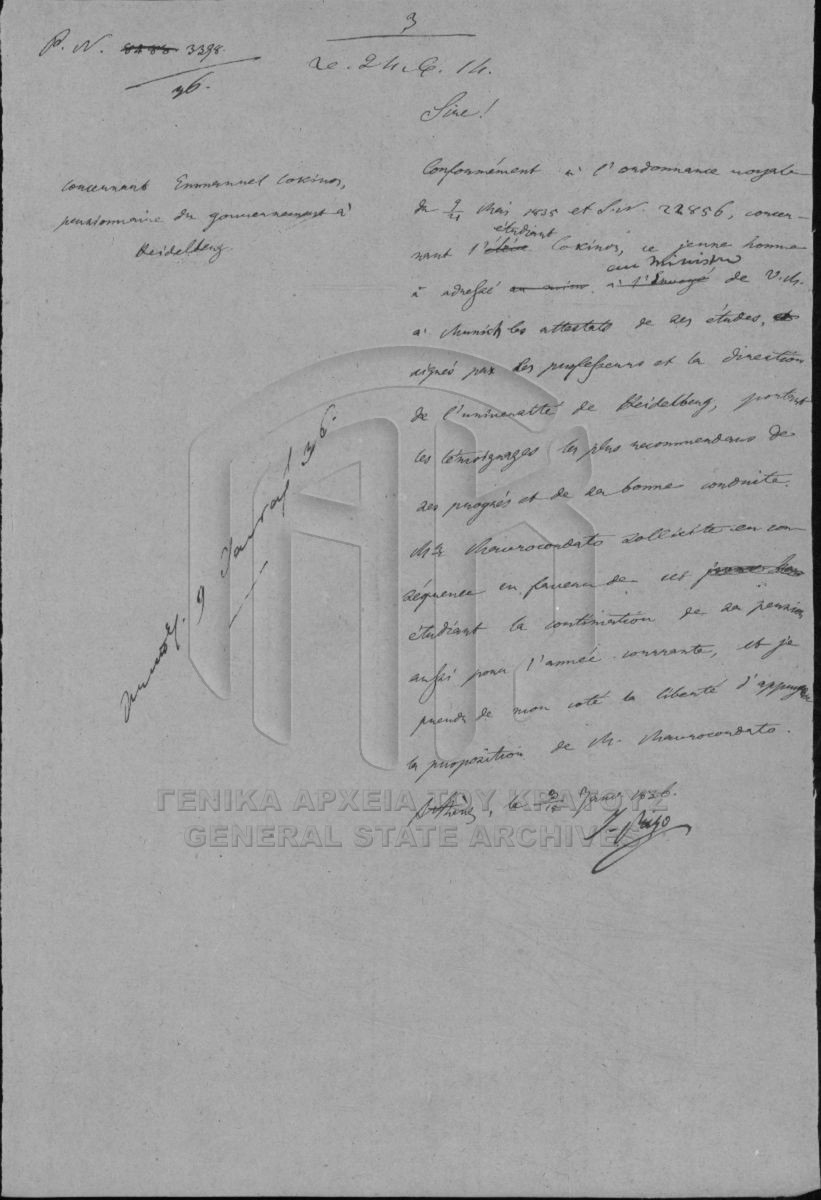 3
P. N. 3398.
36.
24. 14.
Sire!
concernant Emmanuel Cokinos,
pensionnaire du gouvernement à
Heidelberg.
Conformément à l'ordonnance royale
du 9/21 Mai 1835 et S.N. 22856, concer-
étudiant
nant l'élève Cokinos, ce jeune homme
au ministre
à adressé à l'Envoyé de V.M.
à Munich les attestats de ses études, et
signés par les professeurs et la direction
de l'université de Heidelberg, portant
les témoignages les plus recommendans de
ses progrès et de sa bonne conduite.
Mr Maurocordato sollicite en con
séquence en faveur de cet jeune hom
étudiant la continuation de sa pension
aussi pour l'année courrante, et je
prends de mon coté la liberté d'appuyer
la proposition de M. Maurocordato.
Athènes, le 3/15 Janv 1836.
J Rizo
9 36.
ΓΕΝΙΚΑ ΑΡΧΕΙΑ ΤΟΥ ΚΡΑΤΟΥΣ
GENERAL STATE ARCHIVES